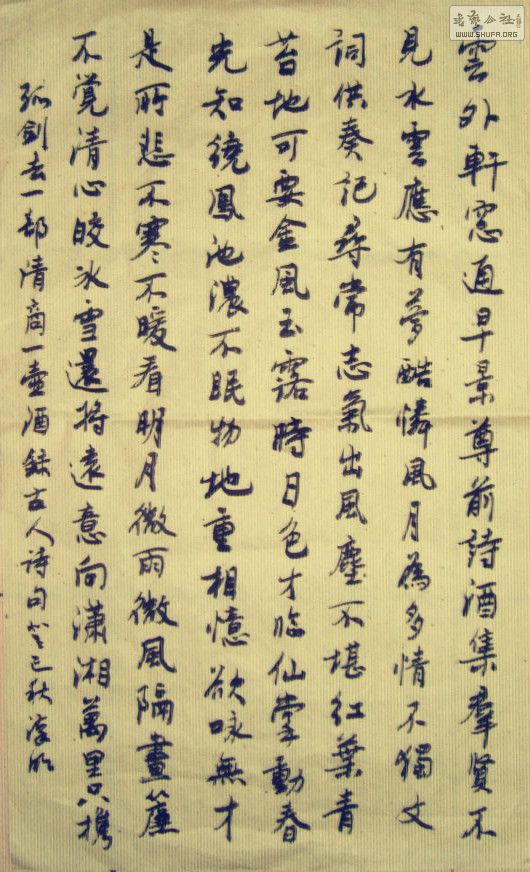 雲外軒窓通早景尊前詩酒集羣賢不
見水雲應有夢酷憐風月為多情不獨文
詞供奏記尋常志氣出風塵不堪红葉青
苔地可要金風玉露時日色才臨仙掌動春
光知繞鳳池濃不眠物地重相憶欲咏無才
是所悲不寒不暖看明月微雨微風隔畫簾
不覺清心皎冰雪還将遠意向瀟湘萬里只攜
孤劍去一部清商一壺酒録古人诗句
巳秋
WWW.SHUFA.ORG